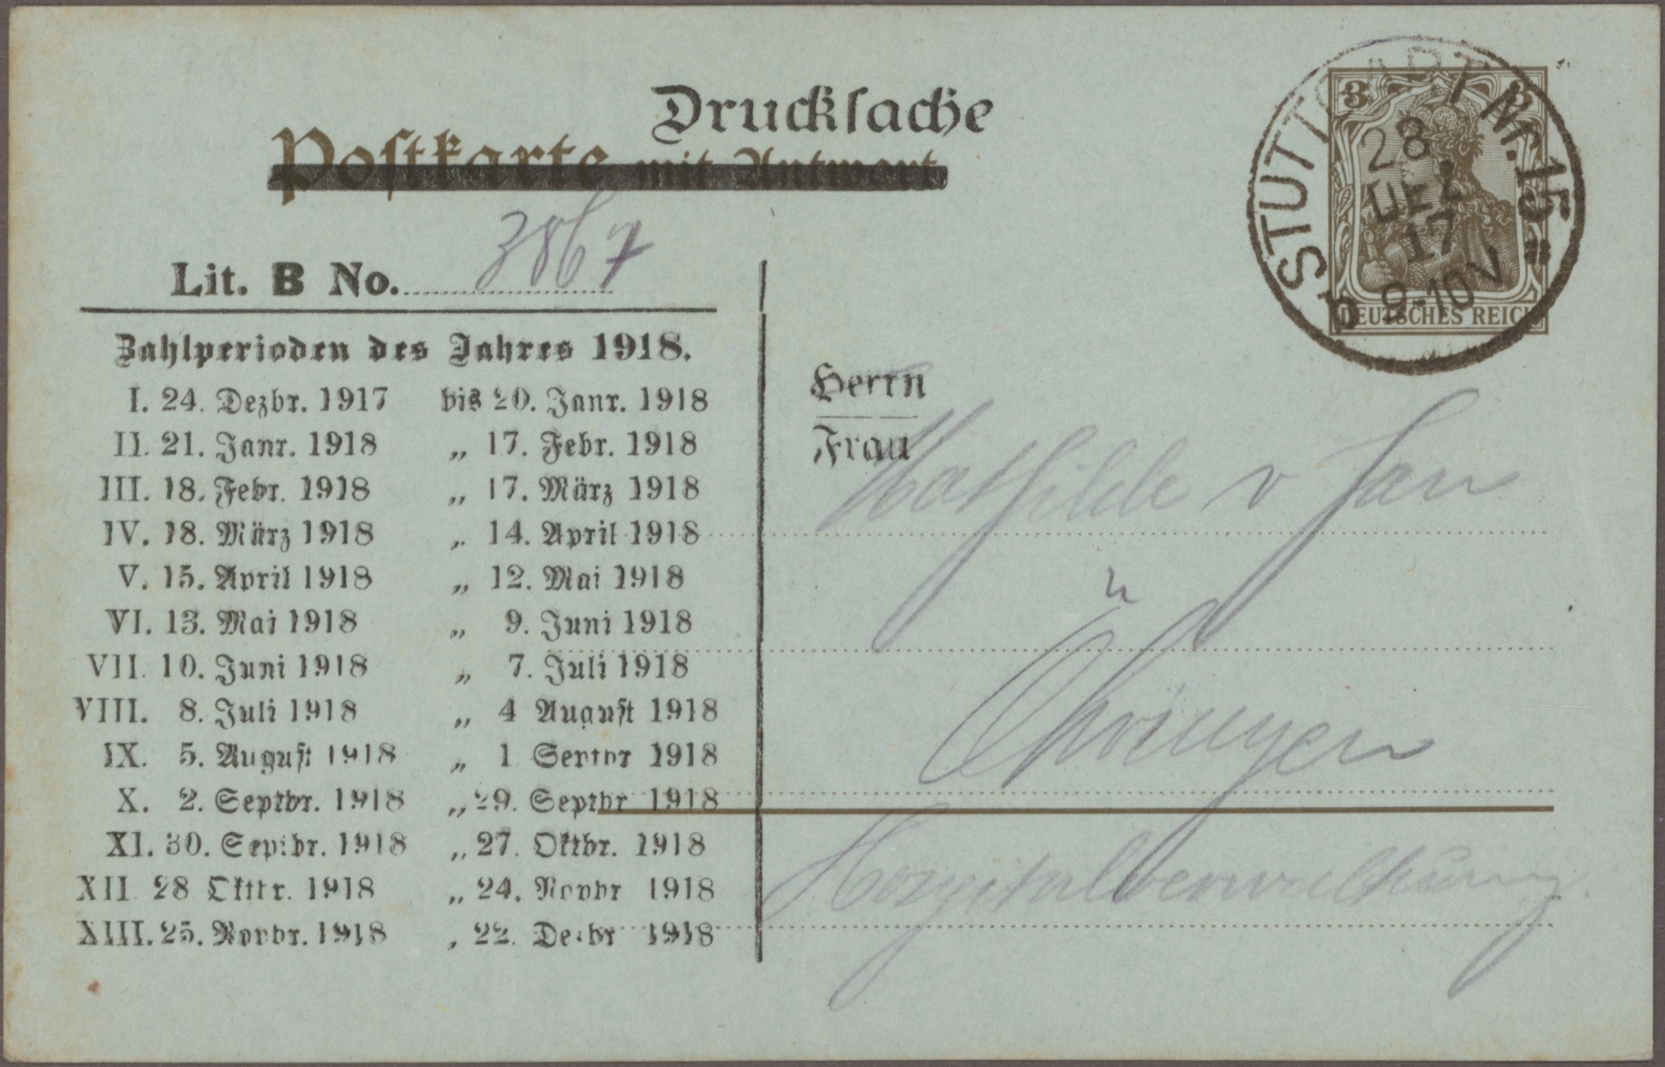 Drucksache
Postkarte mit Antwort
3 3
DEUTSCHES REICH
STUTTGART Nr. 15
28
DEZ
17
9-10V
b
Lit. B No. 3867
Zahlperioden des Jahres 1918.
I. 24. Dezbr. 1917 bis 20. Janr. 1918
II. 21. Janr. 1918 „ 17. Febr. 1918
III. 18. Febr. 1918 „ 17. März 1918
IV. 18. März 1918 „ 14. April 1918
V. 15. April 1918 „ 12. Mai 1918
VI. 13. Mai 1918 „ 9. Juni 1918
VII. 10. Juni 1918 „ 7. Juli 1918
VIII. 8. Juli 1918 „ 4 August 1918
IX. 5. August 1918 „ 1 Septbr 1918
X. 2. Septbr. 1918 „ 29. Septbr 1918
XI. 30. Septbr. 1918 „ 27. Oktbr. 1918
XII 28 Oktbr. 1918 „ 24. Novbr 1918
XIII. 25. Novbr. 1918 „ 22. Dezbr 1918
Herrn
Frau
Mathilde v
Öhringen
Hospitalverwaltung